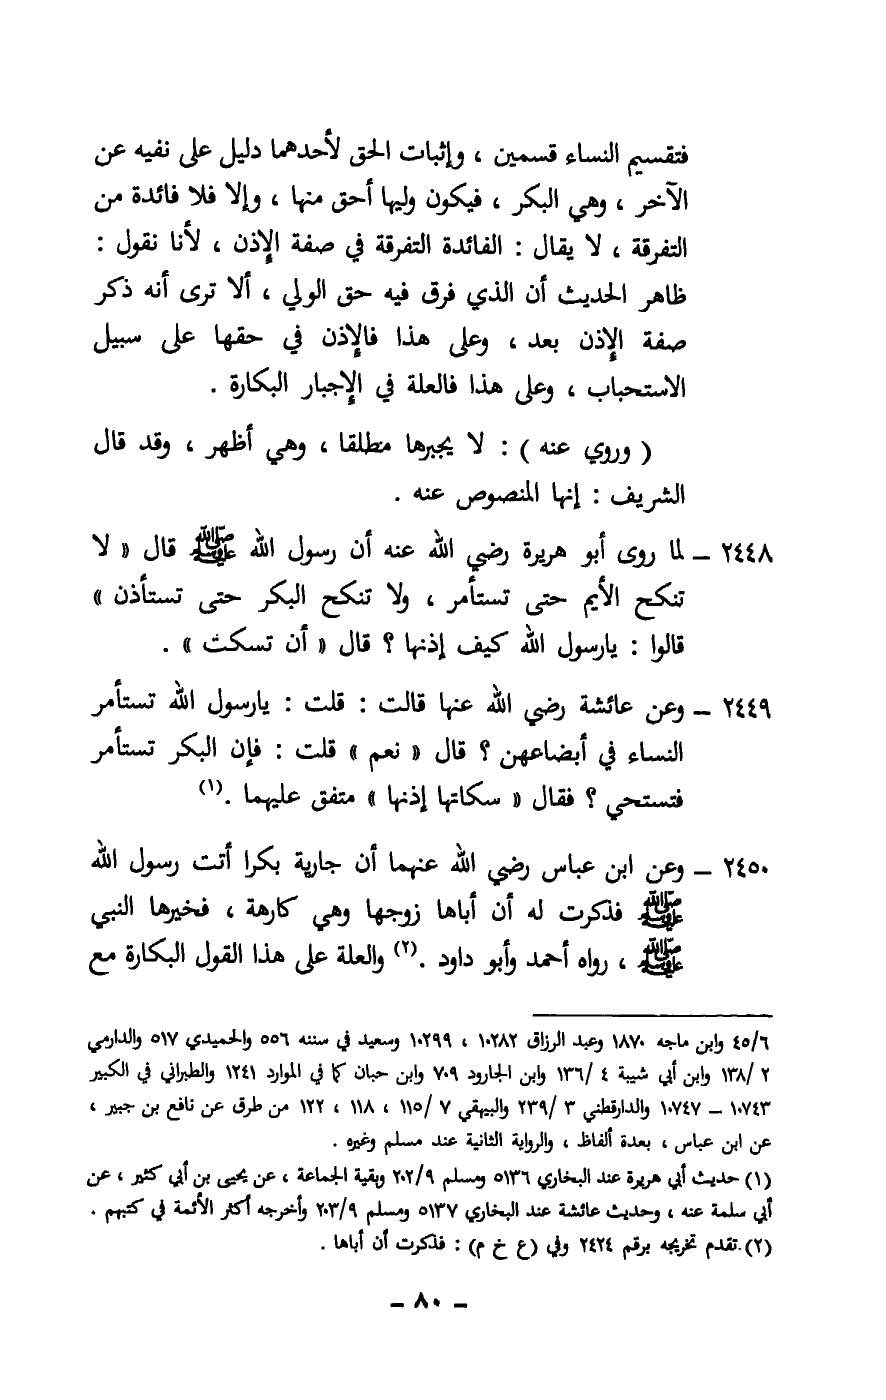 فتقسيم النساء قسمين ، وإثبات الحق لأحدهما دليل على نفيه عن
الآخر ، وهي البكر ، فيكون وليها أحق منها ، وإلا فلا فائدة من
التفرقة ، لا يقال : الفائدة التفرقة في صفة الإذن ، لأنا نقول :
ظاهر الحديث أن الذي فرق فيه حق الولي ، ألا ترى أنه ذكر
صفة الإذن بعد ، وعلى هذا فالإذن في حقها على سبيل
الاستحباب ، وعلى هذا فالعلة في الإجبار البكارة .
( وروي عنه ) : لا يجبرها مطلقا ، وهي أظهر ، وقد قال
الشريف : إنها المنصوص عنه .
٢٤٤٨ – لما روى أبو هريرة رضي الله عنه أن رسول الله ﷺ قال « لا
تنكح الأيم حتى تستأمر ، ولا تنكح البكر حتى تستأذن »
قالوا : يارسول الله كيف إذنها ؟ قال « أن تسكت » .
٢٤٤٩ – وعن عائشة رضي الله عنها قالت : قلت : يارسول الله تستأمر
النساء في أبضاعهن ؟ قال « نعم » قلت : فإن البكر تستأمر
فتستحي ؟ فقال « سكاتها إذنها » متفق عليهما .(١)
٢٤٥٠ – وعن ابن عباس رضي الله عنهما أن جارية بكرا أتت رسول الله
ﷺ فذكرت له أن أباها زوجها وهي كارهة ، فخيرها النبي
ﷺ ، رواه أحمد وأبو داود .(٢) والعلة على هذا القول البكارة مع
٤٥/٦ وابن ماجه ١٨٧٠ وعبد الرزاق ١٠٢٨٢ ، ١٠٢٩٩ وسعيد في سننه ٥٥٦ والحميدي ٥١٧ والدارمي
٢ /١٣٨ وابن أبي شيبة ٤ /١٣٦ وابن الجارود ٧٠٩ وابن حبان كما في الموارد ١٢٤١ والطبراني في الكبير
١٠٧٤٣ – ١٠٧٤٧ والدارقطني ٣ /٢٣٩ والبيهقي ٧ /١١٥ ، ١١٨ ، ١٢٢ من طرق عن نافع بن جبير ،
عن ابن عباس ، بعدة ألفاظ ، والرواية الثانية عند مسلم وغيره .
(١) حديث أبي هريرة عند البخاري ٥١٣٦ ومسلم ٢٠٢/٩ وبقية الجماعة ، عن يحيى بن أبي كثير ، عن
أبي سلمة عنه ، وحديث عائشة عند البخاري ٥١٣٧ ومسلم ٢٠٣/٩ وأخرجه أكثر الأئمة في كتبهم .
(٢) تقدم تخريجه برقم ٢٤٢٤ وفي (ع خ م) : فذكرت أن أباها .
– ٨٠ –